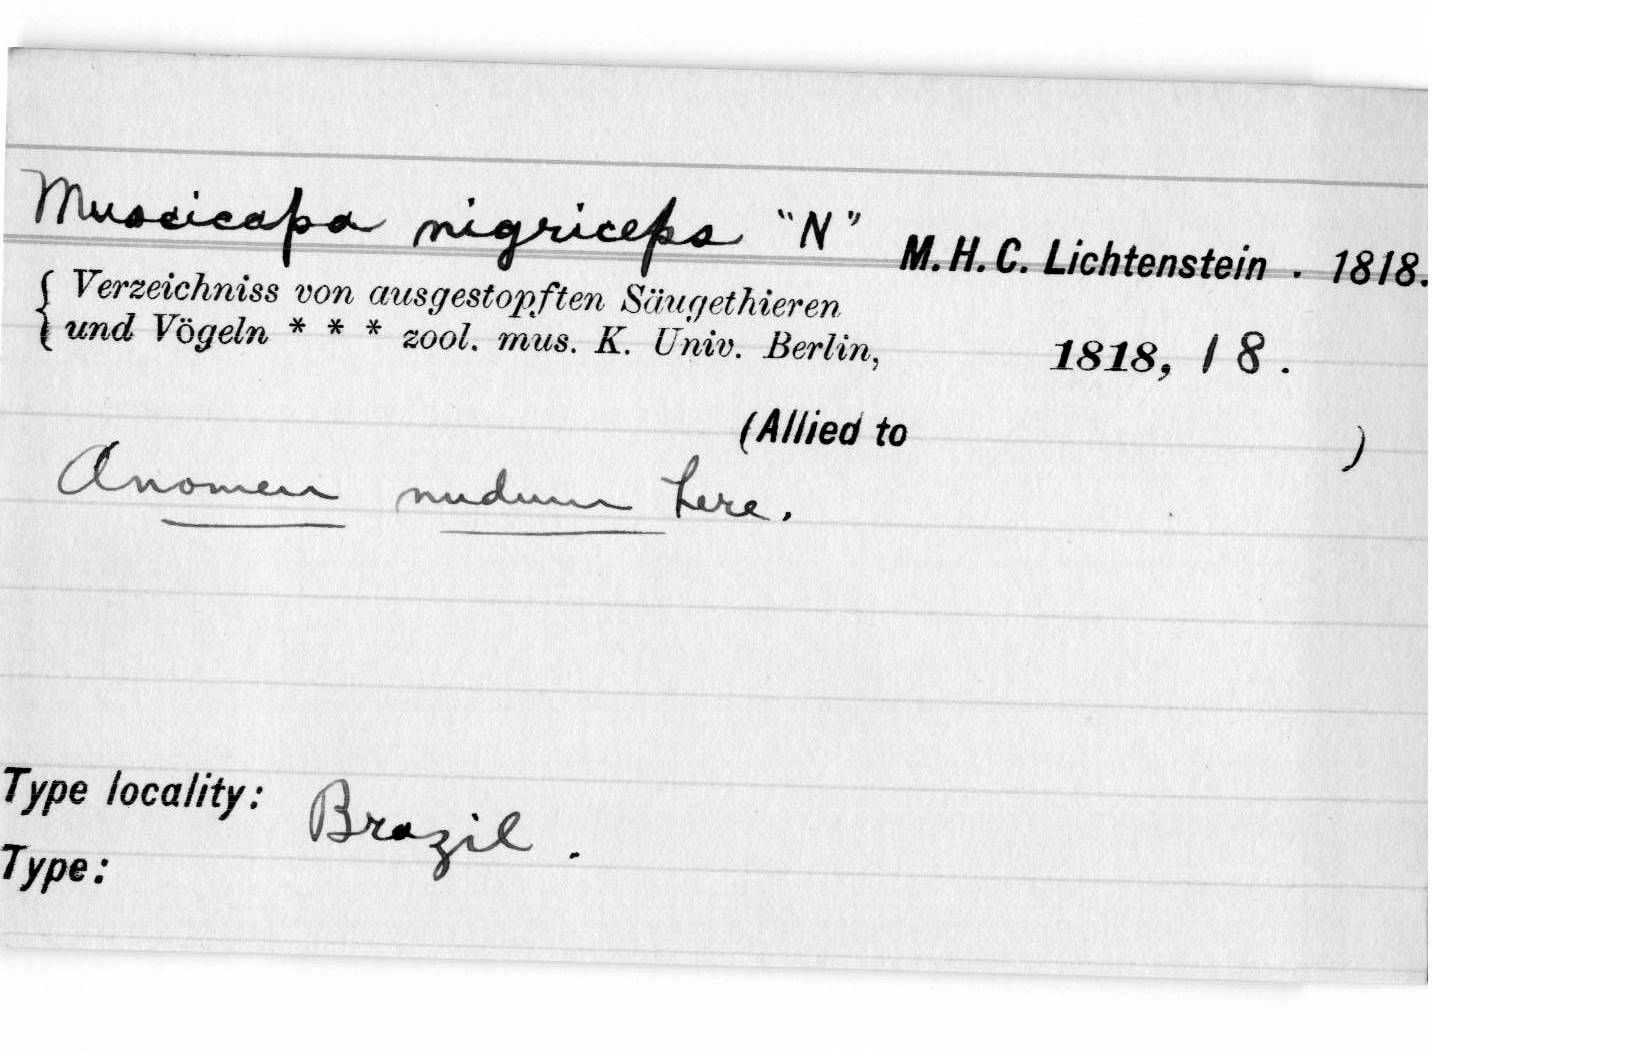 Muscicapa nigriceps "N" M. H. C. Lichtenstein . 1818.
{ Verzeichniss von ausgestopften Säugethieren
und Vögeln * * * zool. mus. K. Univ. Berlin, 1818, 18.
(Allied to )
A nomen nudum here.
Type locality: Brazil.
Type: